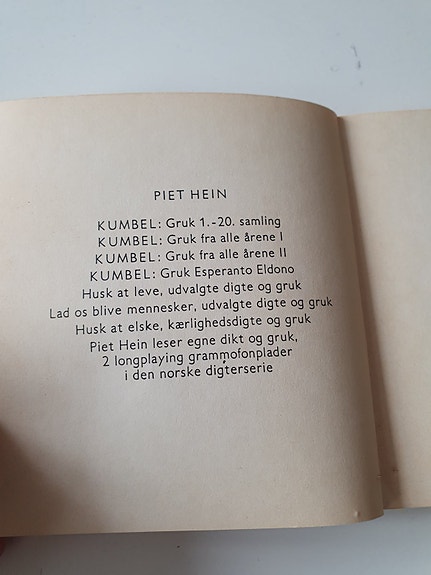 PIET HEIN
KUMBEL: Gruk 1.-20. samling
KUMBEL: Gruk fra alle årene I
KUMBEL: Gruk fra alle årene II
KUMBEL: Gruk Esperanto Eldono
Husk at leve, udvalgte digte og gruk
Lad os blive mennesker, udvalgte digte og gruk
Husk at elske, kærlighedsdigte og gruk
Piet Hein leser egne dikt og gruk,
2 longplaying grammofonplader
i den norske digterserie